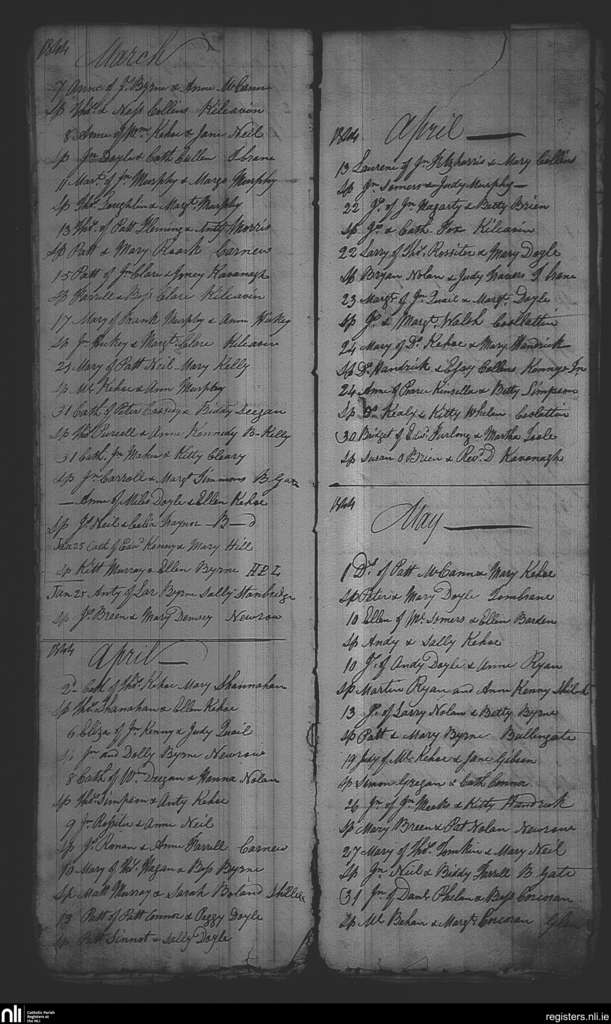 1844
March
7 Anne of Js. Byrne & Anne McCann
Sp Thos. & Ness Collins Kilcavin
8 Anne of Kehoe & Jane Neil
Sp Jn. Doyle & Cath Cullen
11 Mart. of Jn. Murphy & Margt. Murphy
Sp Thos. Loughlin & Margt. Murphy
13 Thos. of Patt Fleming & Anty Morris
Sp Patt & Mary Roark Carnew
15 Patt of Jn. Clare & Kavanagh
Sp Farrell & Bess Clare Kilcavin
17 Mary of Frank Murphy & Ann Hickey
Sp Jn. Hickey & Margt. Clare Kilcavin
21 Mary of Patt Neil Mary Kelly
Sp Ml. Kehoe & Ann Murphy
31 Cath of Peter & Biddy Deegan
Sp Thos. Pursell & Anne Kennedy B. Kelly
31 Cath. Jn. & Kitty Cleary
Sp Jn. Carroll & Margt. Simmons B. Gate
— Anne of Miles Doyle & Ellen Kehoe
Sp Js. Neil & Traynor B—d
Jan 25 of Edwd. Kenny & Mary Hill
Sp Kitt Murray & Ellen Byrne
Jan 25 Anty of Lar Byrne Sally Stanbridge
Sp Js. Breen & Mary Dempsy Newrow
1844
April
2d. Cath of Thos. Kehoe Mary Shannahan
Sp Thos. Shanahan & Ellen Kehoe
6 Eliza of Jn. Kenny & Judy Quail
Sp Jn. and Dolly Byrne Newrow
8 Cath of Wm. Deegan & Hanna Nolan
Sp Thos. Simpson & Anty Kehoe
9 Jn. & Anne Neil
Sp Js. Ronan & Anne Farrell Carnew
10 Mary of Thos. Fagan & Bess Byrne
Sp Matt Murray & Sarah Boland
13 Patt of Patt Connor & Peggy Doyle
Sp Patt Sinnot & Sally Doyle
1844
April
13 Laurence of Jn. Fitzharris & Mary Collins
Sp Jn. Somers & Judy Murphy
22 Js. of Jn. Hagarty & Betty Brien
Sp Jn. & Cath Fox Kilcavin
22 Larry of Thos. Rossiter & Mary Doyle
Sp Bryan Nolan & Judy
23 Margt. of Jn. Quail & Margt. Doyle
Sp Js. & Margt. Walsh Coolattin
24 Mary of Ds. Kehoe & Mary Handrick
Sp Ds. Handrick & Collins
24 Anne of Kinsella & Betty Simpson
Sp Kealy & Kitty Whelan Coolattin
30 Bridget of Edwd. Furlong & Martha Toole
Sp Susan O Brien & Revd. D Kavanagh
1844
May
1 Ds. of Patt McCann & Mary Kehoe
Sp Peter & Mary Doyle Tombrane
10 Ellen of Ml. Somers & Ellen Barden
Sp Andy & Sally Kehoe
10 Js. of Andy Doyle & Anne Ryan
Sp Martin Ryan and Ann Kenny
13 Js. of Larry Nolan & Betty Byrne
Sp Patt & Mary Byrne Ballingate
19 Judy of Ml. Kehoe & Jane Gibson
Sp Simon Gregan & Cath Connor
26 Jn. of Jn. & Kitty Handrick
Sp Mary Breen & Pat Nolan Newrow
27 Mary of Thos. Tomkin & Mary Neil
Sp Jn. Neil & Biddy Farrell B. Gate
31 Jn. of Danl. Phelan & Bess Corcoran
Sp Ml. Bohan & Margt. Corcoran
nli
Catholic Parish
Registers at
the NLI
registers.nli.ie